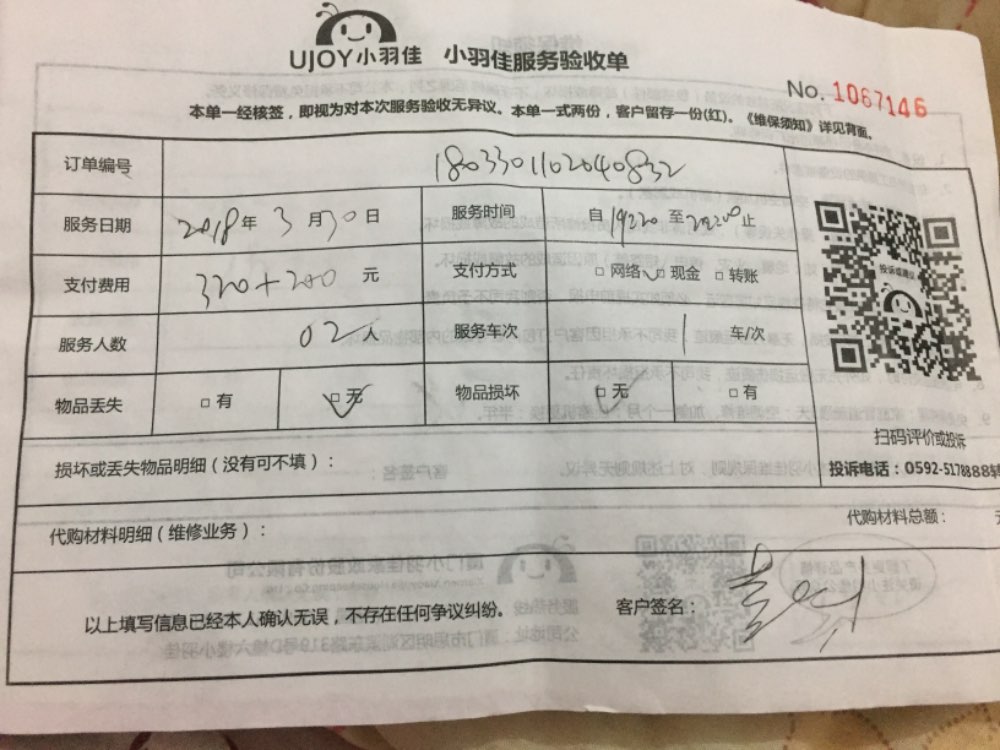 UJOY小羽佳 小羽佳服务验收单
No. 1067146
本单一经核签，即视为对本次服务验收无异议。本单一式两份，客户留存一份(红)。《维保须知》详见背面。
订单编号 1803301102040832
服务日期 2018年3月30日 服务时间 自 至 止
支付费用 320+200 元 支付方式 □网络 □现金 □转账
服务人数 02人 服务车次 1 车/次
物品丢失 □有 □无 物品损坏 □无 □有
投诉或建议
扫码评价或投诉
损坏或丢失物品明细（没有可不填）：
投诉电话：0592-5178888转
代购材料明细（维修业务）：
代购材料总额： 元
以上填写信息已经本人确认无误，不存在任何争议纠纷。 客户签名：